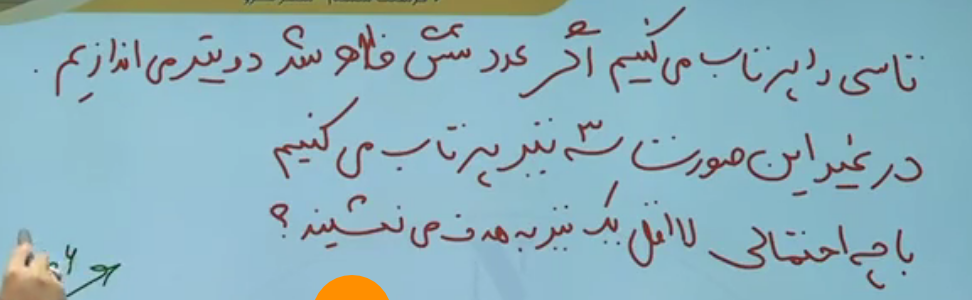 تاسی را پرتاب می کنیم اگر عدد شش ظاهر شد دو تیر می اندازیم .
در غیر این صورت سه ۳ تیر پرتاب می کنیم
با چه احتمالی لااقل یک تیر به هدف می نشیند ؟
۶